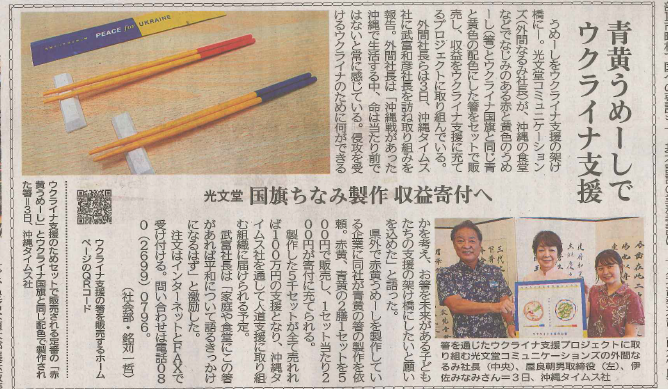 青黄うめーしで
ウクライナ支援
PEACE for UKRAINE
うめーしをウクライナ支援の架け
橋に―。光文堂コミュニケーション
ズ(外間なるみ社長)が、沖縄の食堂
などでなじみのある赤と黄色のうめ
ーし(箸)とウクライナ国旗と同じ青
と黄色の配色にした箸をセットで販
売し、収益をウクライナ支援に充て
るプロジェクトに取り組んでいる。
外間社長らは3日、沖縄タイムス
社に武富和彦社長を訪ね取り組みを
報告。外間社長は「沖縄戦があった
沖縄で生活する中、命は当たり前で
はないと常に感じている。侵攻を受
けるウクライナのために何ができる
光文堂 国旗ちなみ製作 収益寄付へ
かを考え、お箸を未来がある子ども
たちの支援の架け橋にしたいと願い
を込めた」と語った。
県外で赤黄うめーしを製作してい
る企業に同社が青黄の箸の製作を依
頼。赤黄、青黄の2膳1セットを5
00円で販売し、1セット当たり2
00円が寄付に充てられる。
製作した5千セットが全て売れれ
ば100万円の支援となり、沖縄タ
イムス社を通して人道支援に取り組
む組織に届けられる予定。
武富社長は「家庭や食堂にこの箸
があれば平和について語るきっかけ
になるはず」と激励した。
注文はインターネットとFAXで
受け付ける。問い合わせは電話08
0(2699)0796。
(社会部・銘苅一哲)
ウクライナ支援の箸を販売するホーム
ページのQRコード
ウクライナ支援のためセットで販売される定番の「赤
黄うめーし」とウクライナ国旗と同じ配色で製作され
た箸=3日、沖縄タイムス社
箸を通じたウクライナ支援プロジェクトに取
り組む光文堂コミュニケーションズの外間な
るみ社長(中央)、屋良朝男取締役(左)、伊
佐みなみさん=3日、沖縄タイムス社